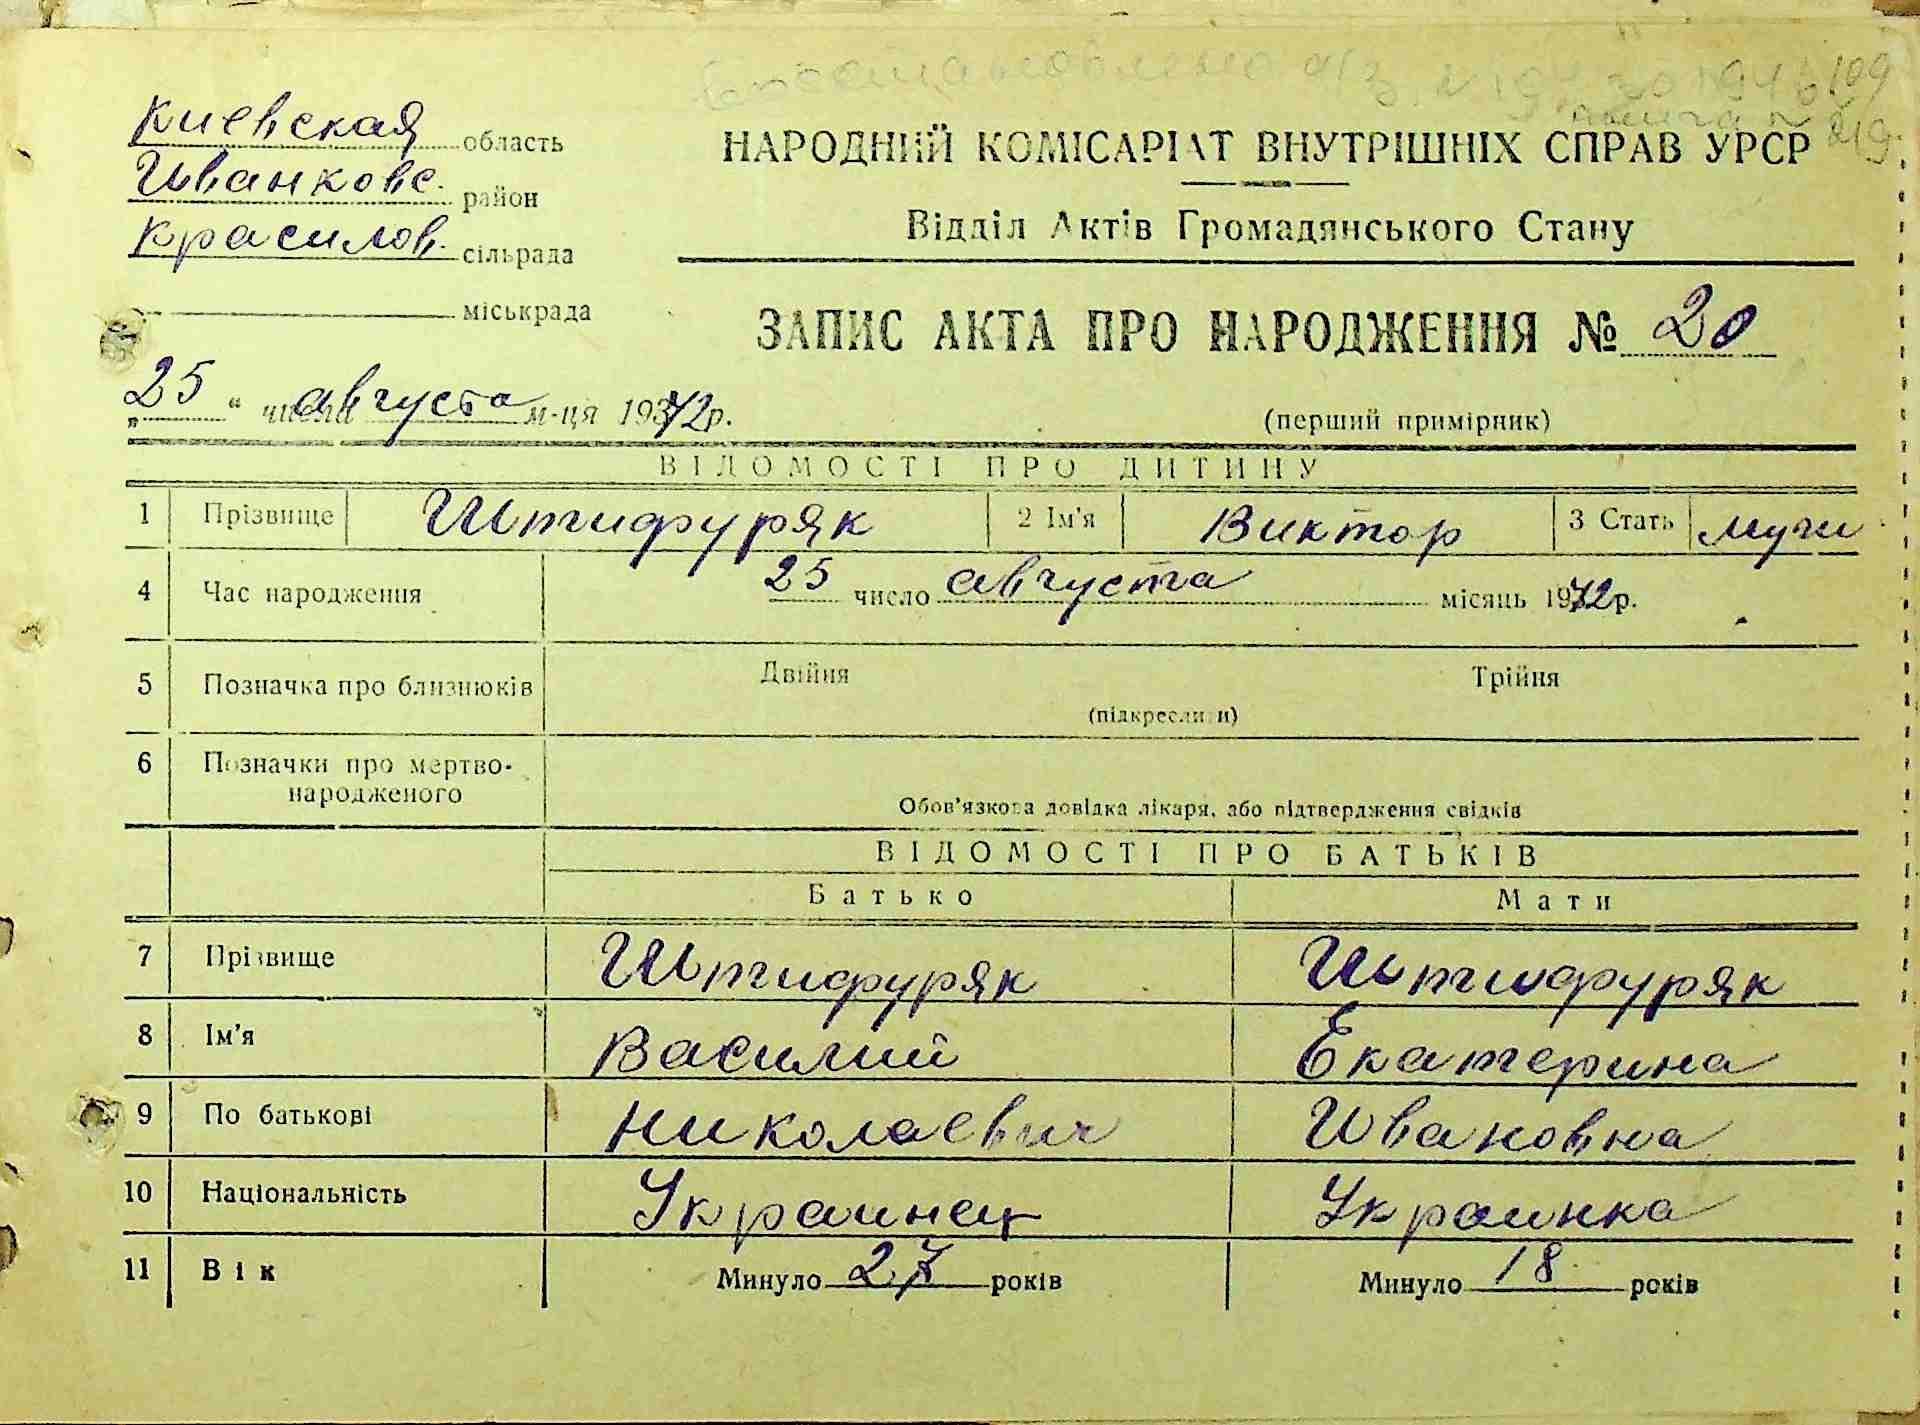 Восстановлено а/з №19 1946 109
книга № 219
Киевская область
Иванковс. район
Красилов. сільрада
міськрада
НАРОДНИЙ КОМІСАРІАТ ВНУТРІШНІХ СПРАВ УРСР
Відділ Актів Громадянського Стану
ЗАПИС АКТА ПРО НАРОДЖЕННЯ № 20
„25“ числа августа м-ця 1942р.
(перший примірник)
ВІДОМОСТІ ПРО ДИТИНУ
1 Прізвище Штифуряк 2 Ім'я Виктор 3 Стать муж
4 Час народження 25 число августа місяць 1942р.
5 Позначка про близнюків Двійня Трійня
(підкреслити)
6 Позначки про мертво-
народженого
Обов'язкова довідка лікаря, або підтвердження свідків
ВІДОМОСТІ ПРО БАТЬКІВ
Батько Мати
7 Прізвище Штифуряк Штифуряк
8 Ім'я Василий Екатерина
9 По батькові Николаевич Ивановна
10 Національність Украинец Украинка
11 Вік Минуло 27 років Минуло 18 років